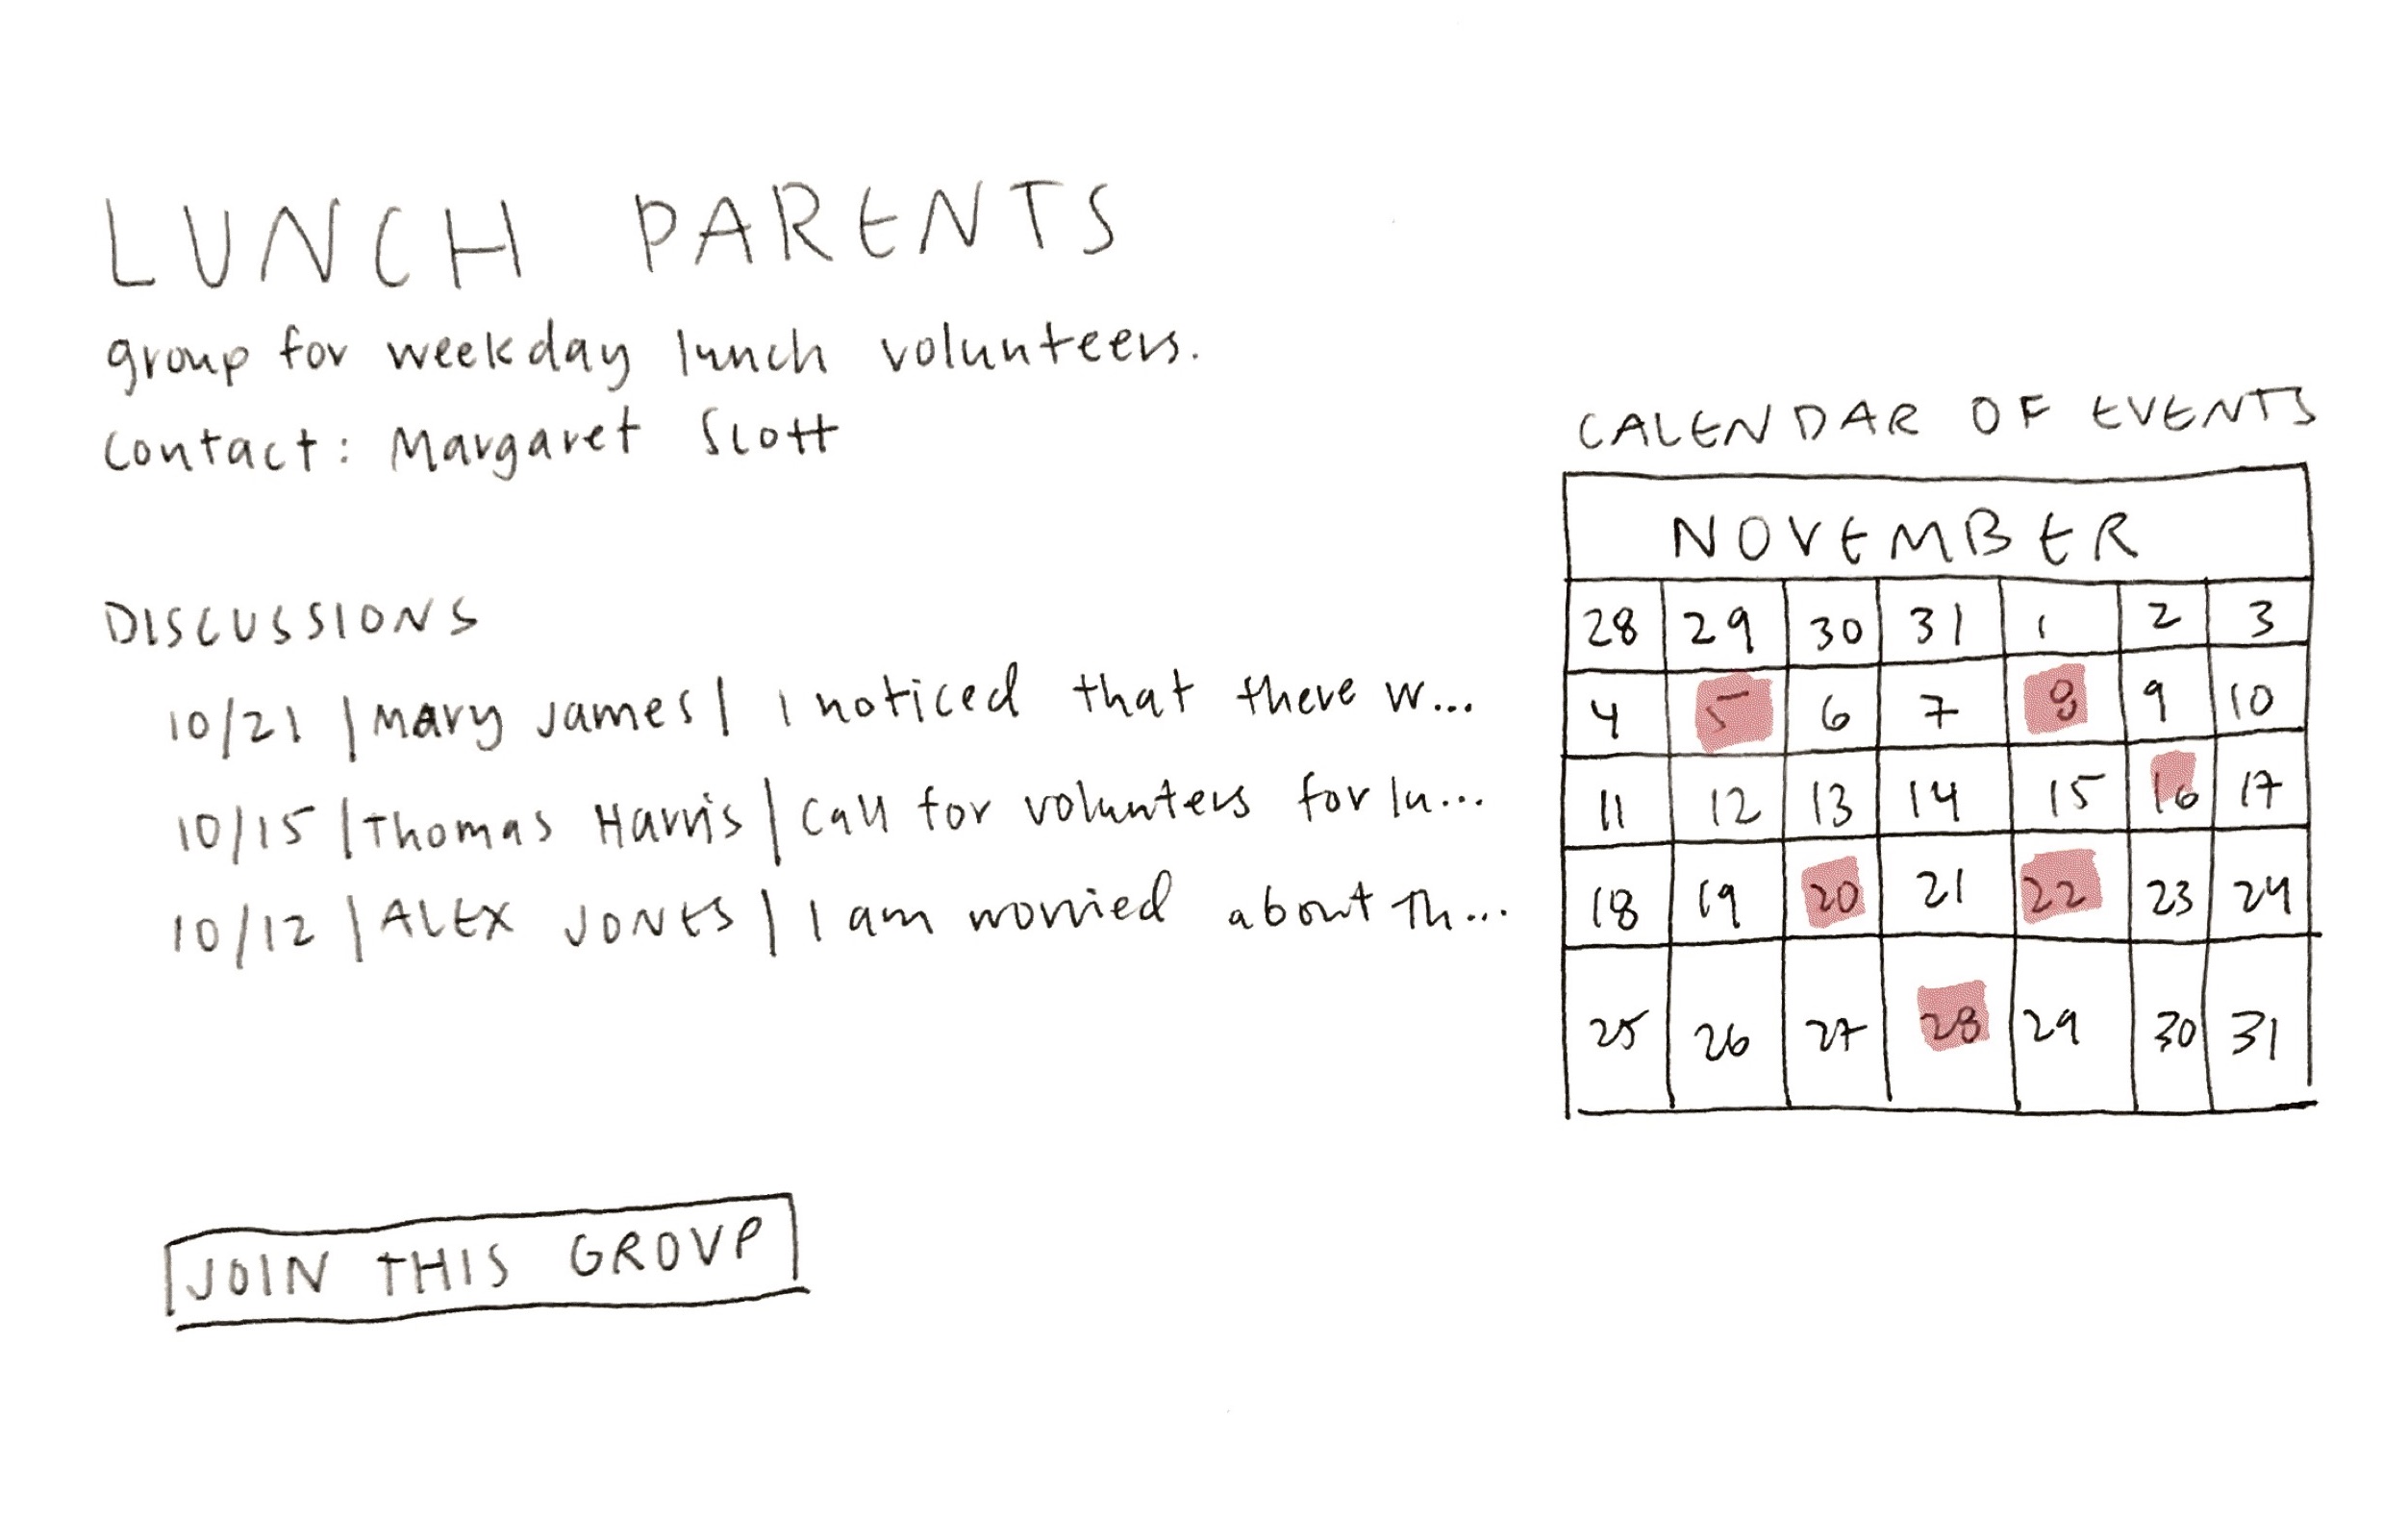 LUNCH PARENTS
group for weekday lunch volunteers.
contact: Margaret Scott
DISCUSSIONS
10/21 | Mary James | I noticed that there w...
10/15 | Thomas Harris | Call for volunters for lu...
10/12 | ALEX JONES | I am worried about th...
JOIN THIS GROUP
CALENDAR OF EVENTS
NOVEMBER
28 29 30 31 1 2 3
4 5 6 7 8 9 10
11 12 13 14 15 16 17
18 19 20 21 22 23 24
25 26 27 28 29 30 31